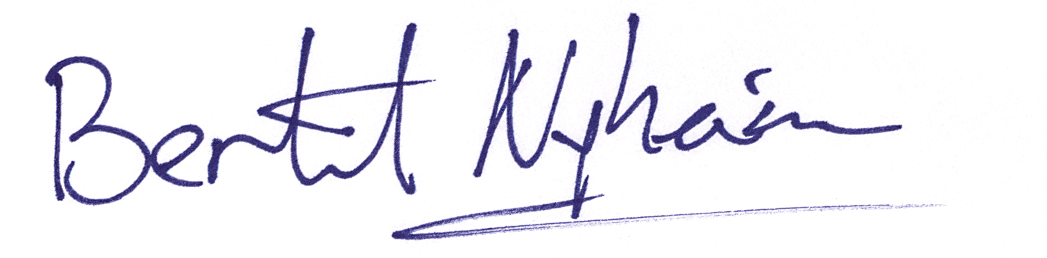 Bertil Nyhain